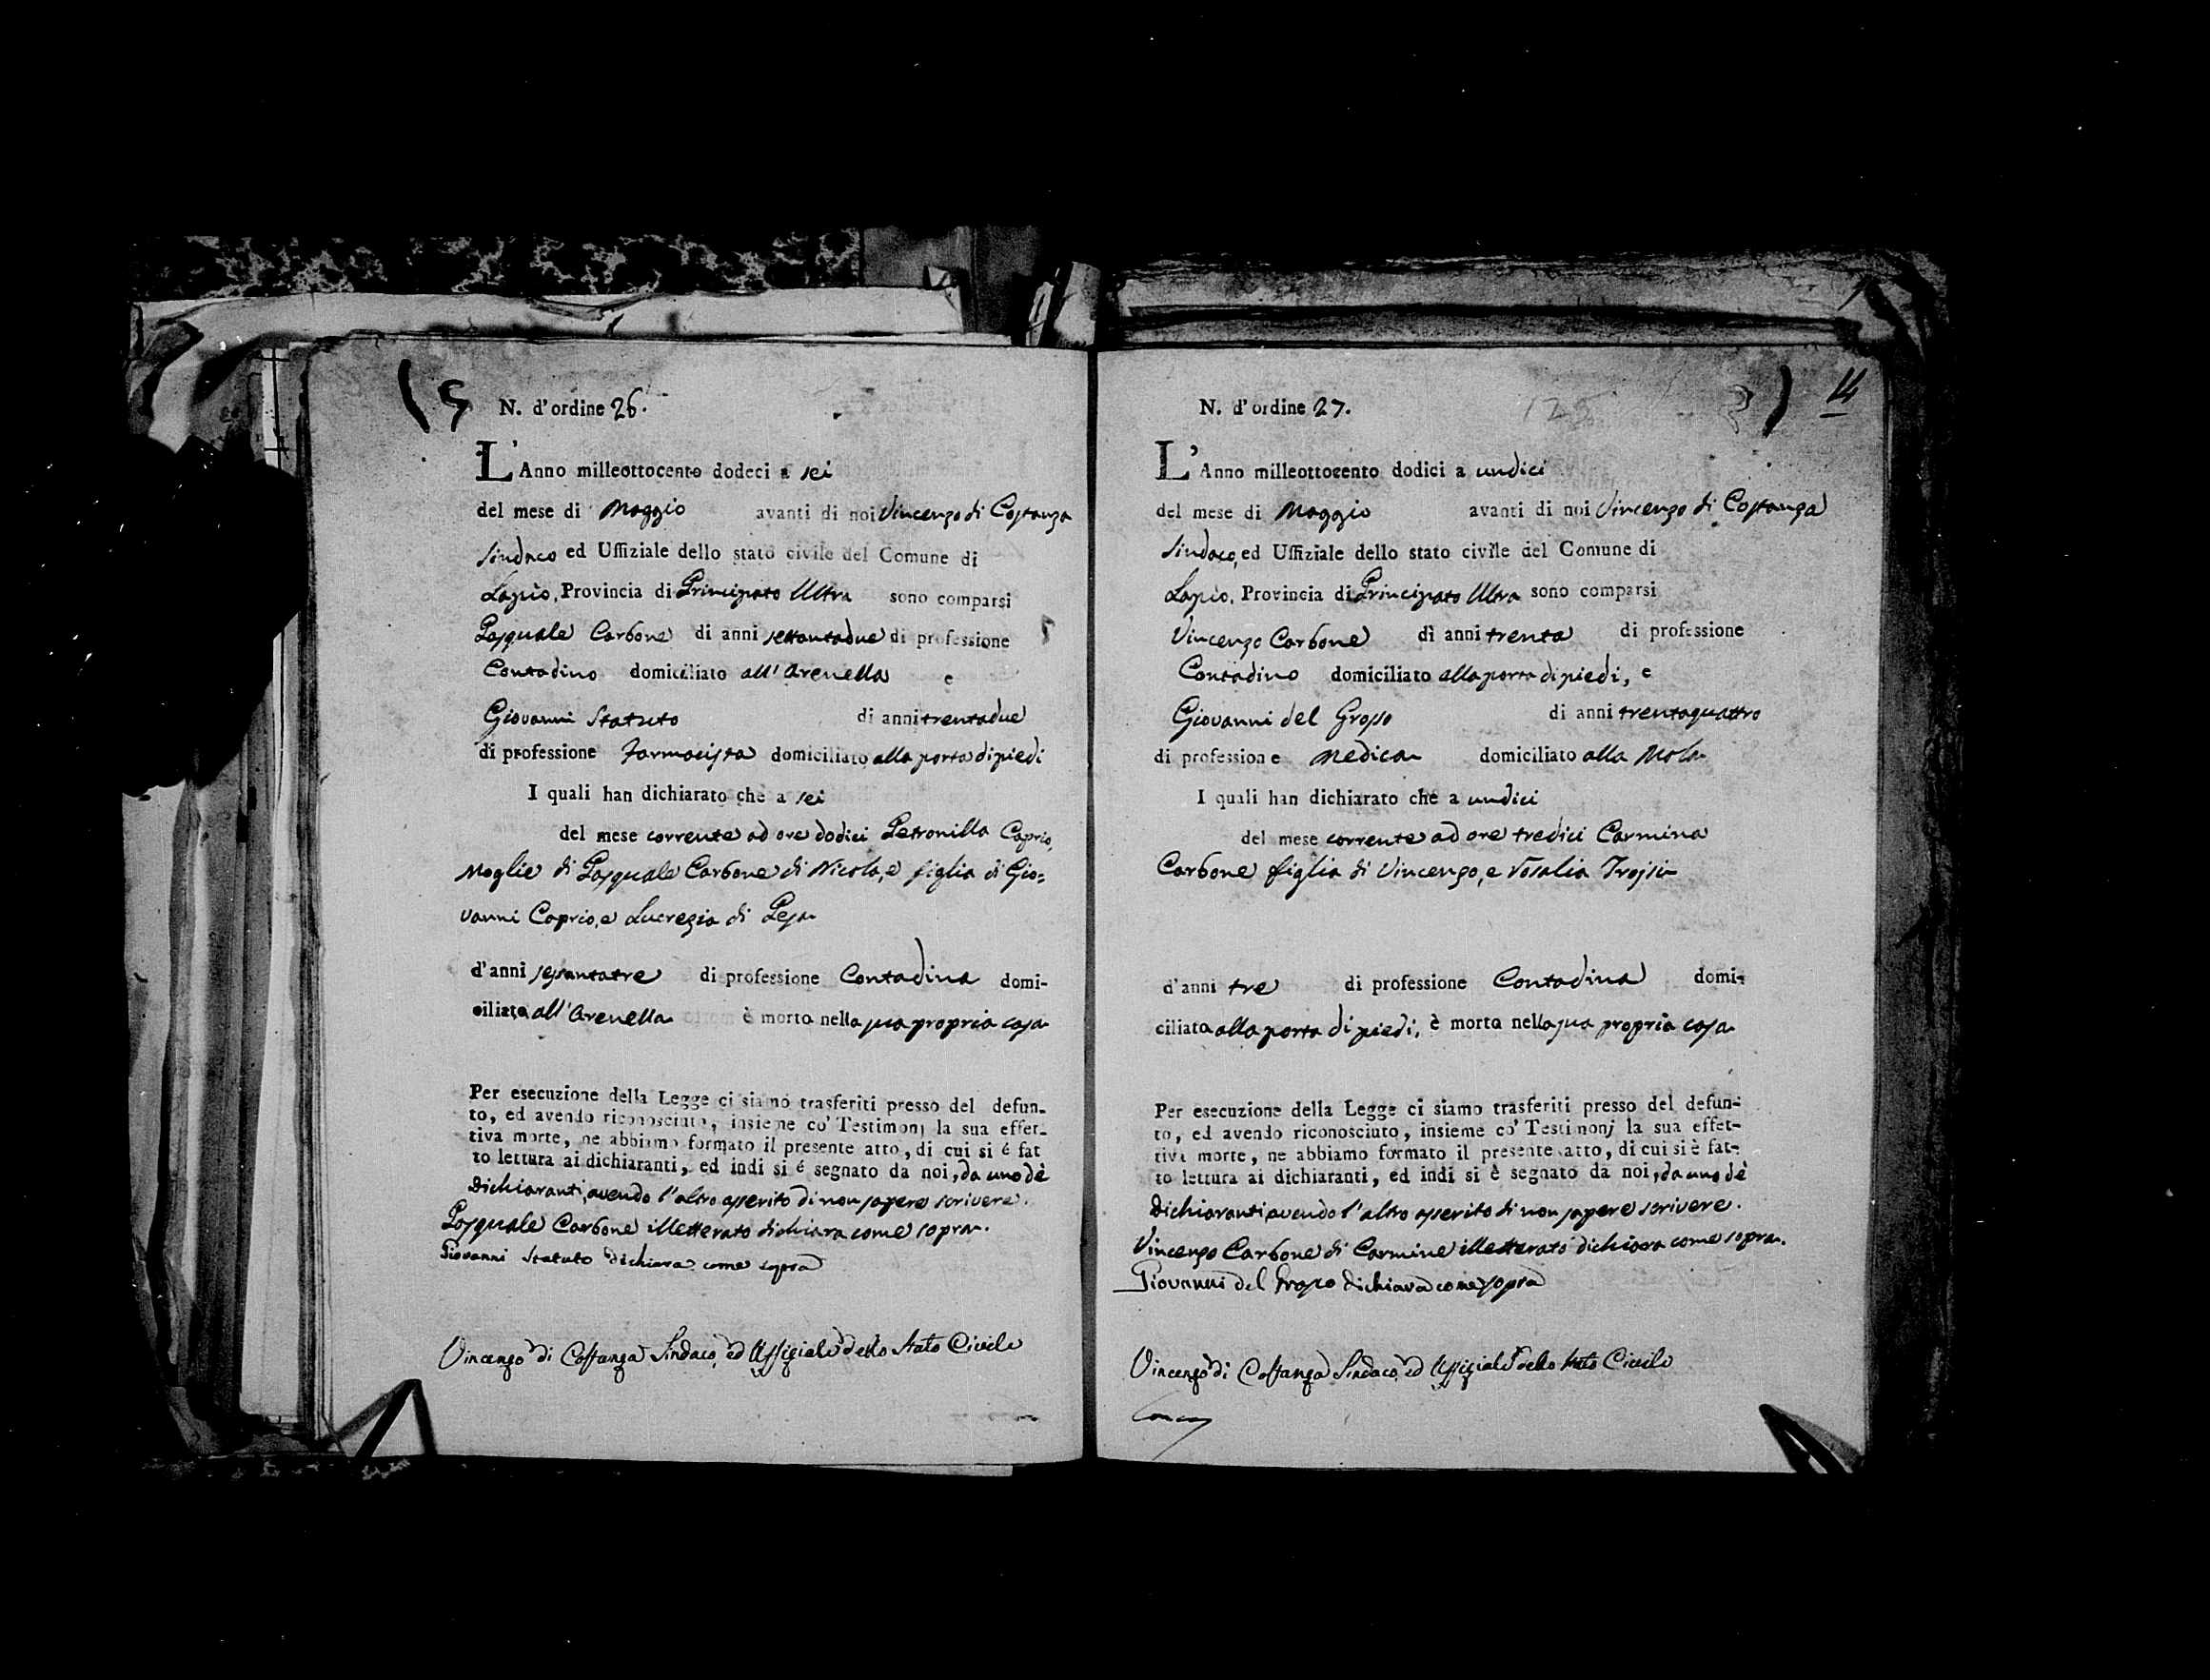 N. d'ordine 26.
L'Anno milleottocento dodeci a sei
del mese di Maggio avanti di noi Vincenzo di Costanza
Sindaco ed Uffiziale dello stato civile del Comune di
Lapio, Provincia di Principato Ultra sono comparsi
Pasquale Carbone di anni settantadue di professione
Contadino domiciliato all'Arenella e
Giovanni Statuto di anni trentadue
di professione Farmacista domiciliato alla porta di piedi
I quali han dichiarato che a sei
del mese corrente ad ore dodici Petronilla Caprio,
Moglie di Pasquale Carbone di Nicola, e figlia di Gio=
vanni Caprio, e Lucrezia di Pesa
d'anni sessantatre di professione Contadina domi-
ciliata all'Arenella è morta nella sua propria casa
Per esecuzione della Legge ci siamo trasferiti presso del defun-
to, ed avendo riconosciuto, insieme co' Testimonj la sua effet-
tiva morte, ne abbiamo formato il presente atto, di cui si é fat
to lettura ai dichiaranti, ed indi si é segnato da noi, da uno dè
Dichiaranti, avendo l'altro asserito di non sapere scrivere.
Pasquale Carbone illetterato dichiara come sopra.
Giovanni Statuto dichiara come sopra
Vincenzo di Costanza Sindaco, ed Uffiziale dello Stato Civile
14
N. d'ordine 27.
125
L'Anno milleottocento dodici a undici
del mese di Maggio avanti di noi Vincenzo di Costanza
Sindaco, ed Uffiziale dello stato civile del Comune di
Lapio, Provincia di Principato Ultra sono comparsi
Vincenzo Carbone di anni trenta di professione
Contadino domiciliato alla porta di piedi, e
Giovanni del Grosso di anni trentaquattro
di professione Medica domiciliato alla Mola
I quali han dichiarato che a undici
del mese corrente ad ore tredici Carmina
Carbone figlia di Vincenzo, e Rosalia Trojsi
d'anni tre di professione Contadina domi-
ciliata alla porta di piedi, è morta nella sua propria casa
Per esecuzione della Legge ci siamo trasferiti presso del defun-
to, ed avendo riconosciuto, insieme co' Testimonj la sua effet-
tiva morte, ne abbiamo formato il presente atto, di cui si è fat-
to lettura ai dichiaranti, ed indi si è segnato da noi, da uno dè
Dichiaranti avendo l'altro asserito di non sapere scrivere.
Vincenzo Carbone di Carmine illetterato dichiara come sopra.
Giovanni del Grosso dichiara come sopra
Vincenzo di Costanza Sindaco, ed Uffiziale dello Stato Civile